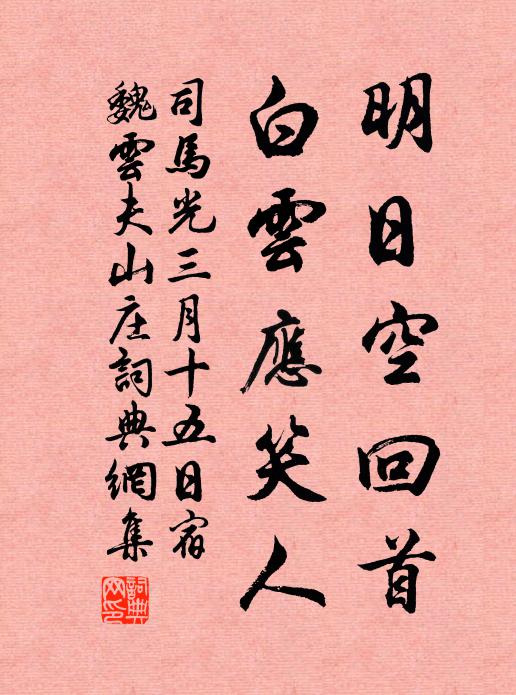 明日空回首
白雲應笑人
司馬光三月十五日宿
魏雲夫山庄詞典網集
詞典网印